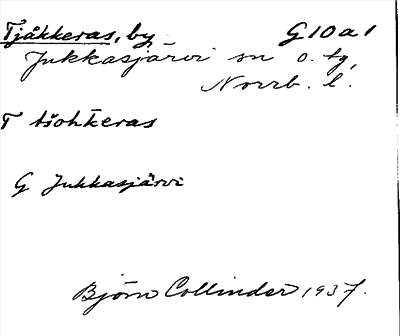 Tjåkkeras, by G10a1
Jukkasjärvi sn o. tg,
Norrb. l.
T tšohkeras
G Jukkasjärvi
Björn Collinder 1937.